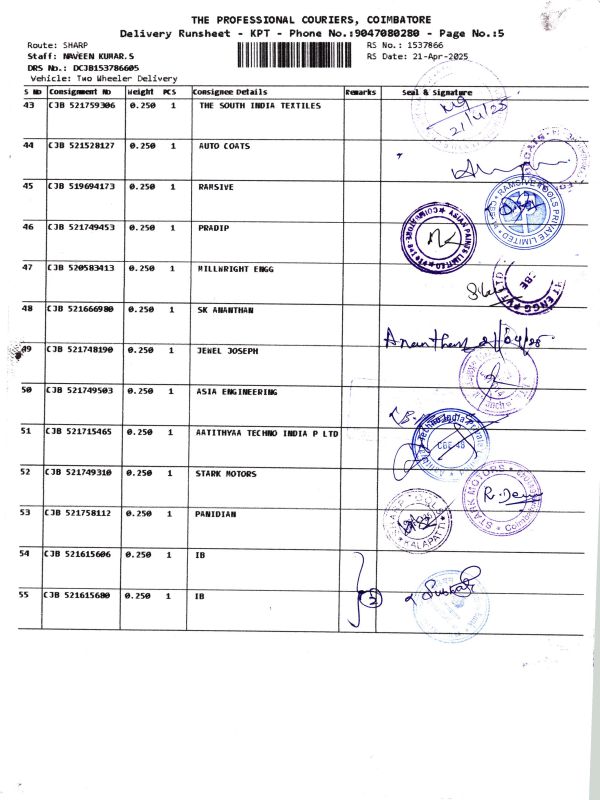 THE PROFESSIONAL COURIERS, COIMBATORE
Delivery Runsheet - KPT - Phone No.:9047080280 - Page No.:5
Route: SHARP RS No.: 1537866
Staff: NAVEEN KUMAR.S RS Date: 21-Apr-2025
DRS No.: DCJB153786605
Vehicle: Two Wheeler Delivery
S No Consignment No Weight PCS Consignee Details Remarks Seal & Signature
43 CJB 521759306 0.250 1 THE SOUTH INDIA TEXTILES
21/4/25
44 CJB 521528127 0.250 1 AUTO COATS
45 CJB 519694173 0.250 1 RAMSIVE
RAMSIVE TOOLS PRIVATE LIMITED
46 CJB 521749453 0.250 1 PRADIP
ASIAN PAINTS LIMITED COIMBATORE
47 CJB 520583413 0.250 1 MILLWRIGHT ENGG
ENGG PVT LTD
48 CJB 521666980 0.250 1 SK ANANTHAN
Ananthan 21/04/25
49 CJB 521748190 0.250 1 JEWEL JOSEPH
50 CJB 521749503 0.250 1 ASIA ENGINEERING
51 CJB 521715465 0.250 1 AATITHYAA TECHNO INDIA P LTD
Techno India Private
52 CJB 521749310 0.250 1 STARK MOTORS
STARK MOTORS
53 CJB 521758112 0.250 1 PANIDIAN
KALAPATTI
54 CJB 521615606 0.250 1 IB
55 CJB 521615680 0.250 1 IB
2